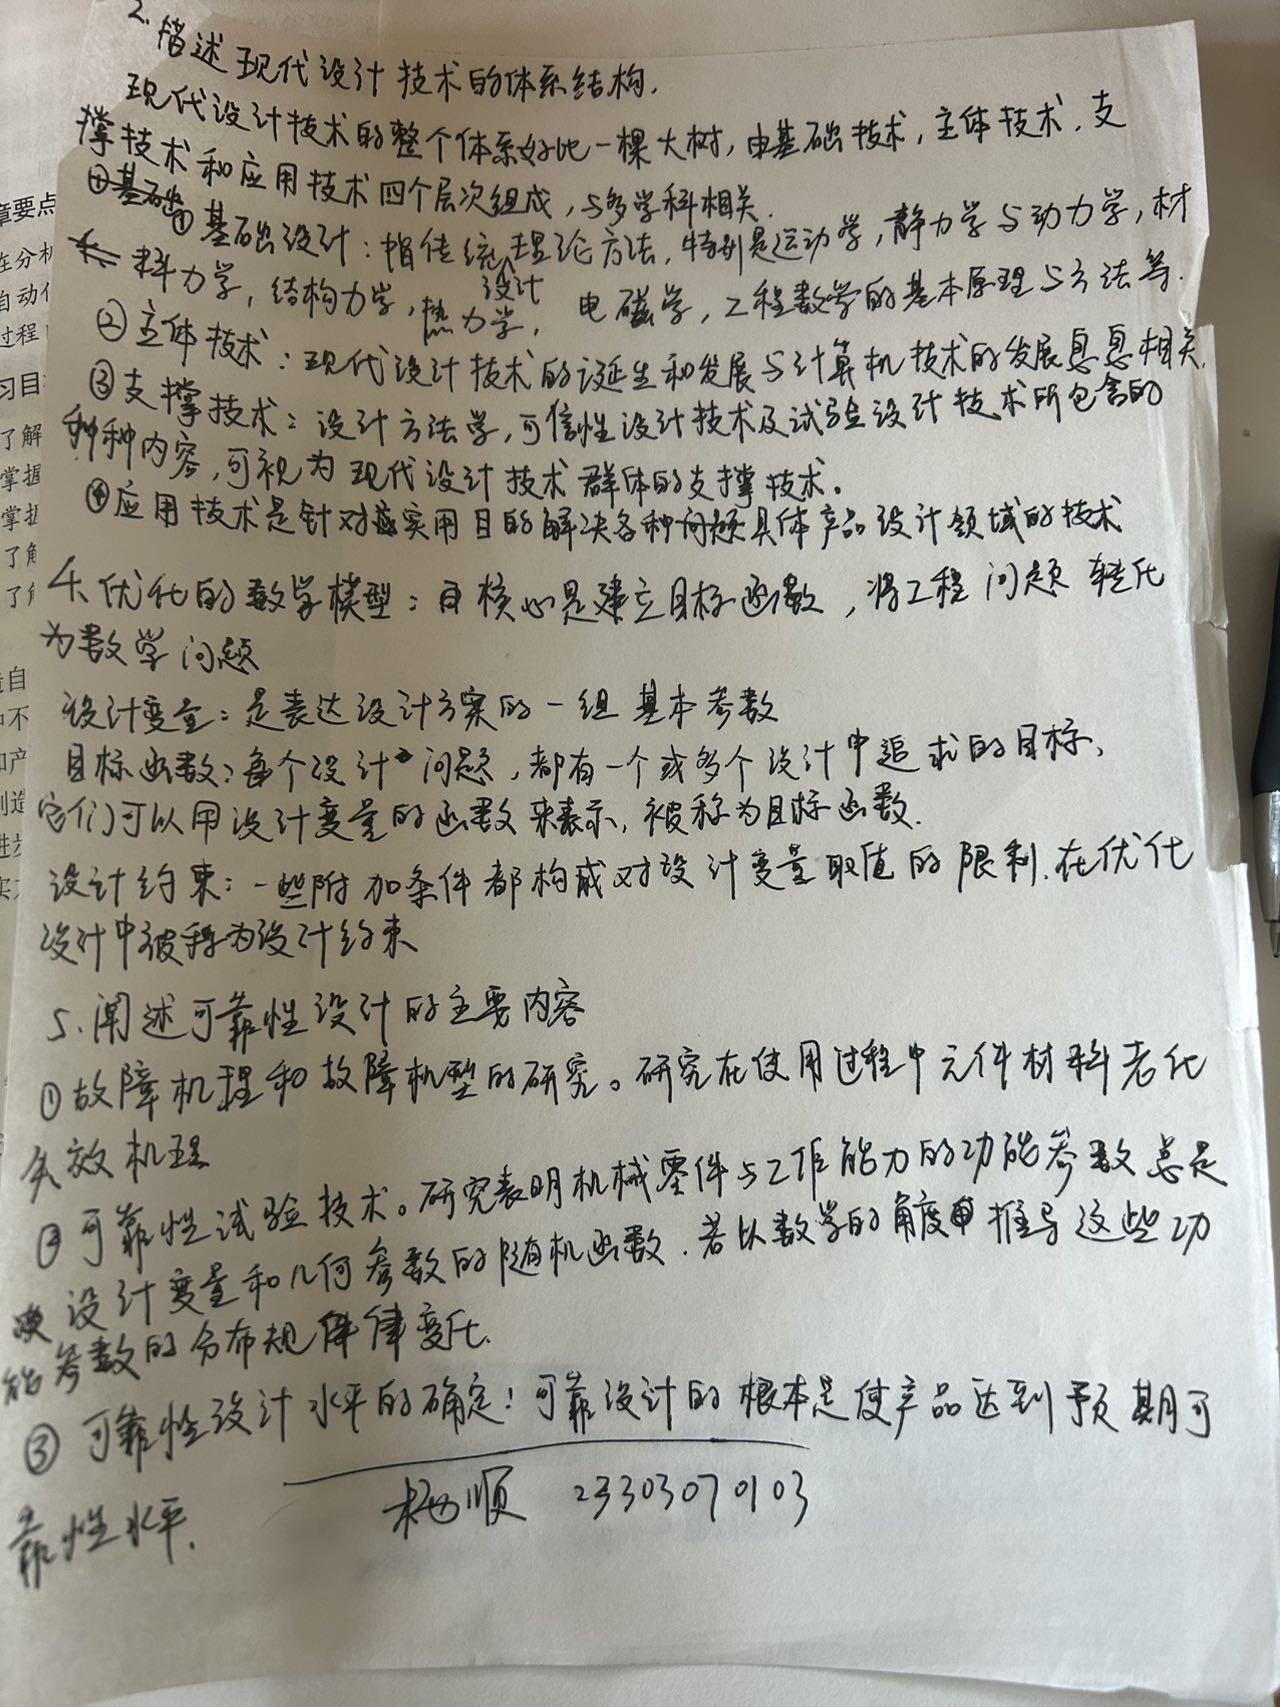 2. 描述现代设计技术的体系结构.
现代设计技术的整个体系好比一棵大树,由基础技术,主体技术.支
撑技术和应用技术四个层次组成,与多学科相关.
①基础
①基础设计:指传统设计理论方法,特别是运动学,静力学与动力学,材
料力学,结构力学,热力学,电磁学,工程数学的基本原理与方法等.
②主体技术:现代设计技术的诞生和发展与计算机技术的发展息息相关.
③支撑技术:设计方法学,可信性设计技术及试验设计技术所包含的
种种内容,可视为现代设计技术群体的支撑技术。
④应用技术是针对实用目的解决各种问题具体产品设计领域的技术
4.优化的数学模型:核心是建立目标函数,将工程问题转化
为数学问题
设计变量:是表达设计方案的一组基本参数
目标函数:每个设计问题,都有一个或多个设计中追求的目标,
它们可以用设计变量的函数来表示,被称为目标函数.
设计约束:一些附加条件都构成对设计变量取值的限制.在优化
设计中被称为设计约束
5.阐述可靠性设计的主要内容
①故障机理和故障机型的研究。研究在使用过程中元件材料老化
失效机理
②可靠性试验技术。研究表明机械零件与工作能力的功能参数总是
设计变量和几何参数的随机函数.若以数学的角度推导这些功
能参数的分布规律变化.
③可靠性设计水平的确定:可靠设计的根本是使产品达到预期可
靠性水平.
杨顺 23303070103
章要点
在分析
自动化
过程
习目
了解
掌握
掌握
了解
了解